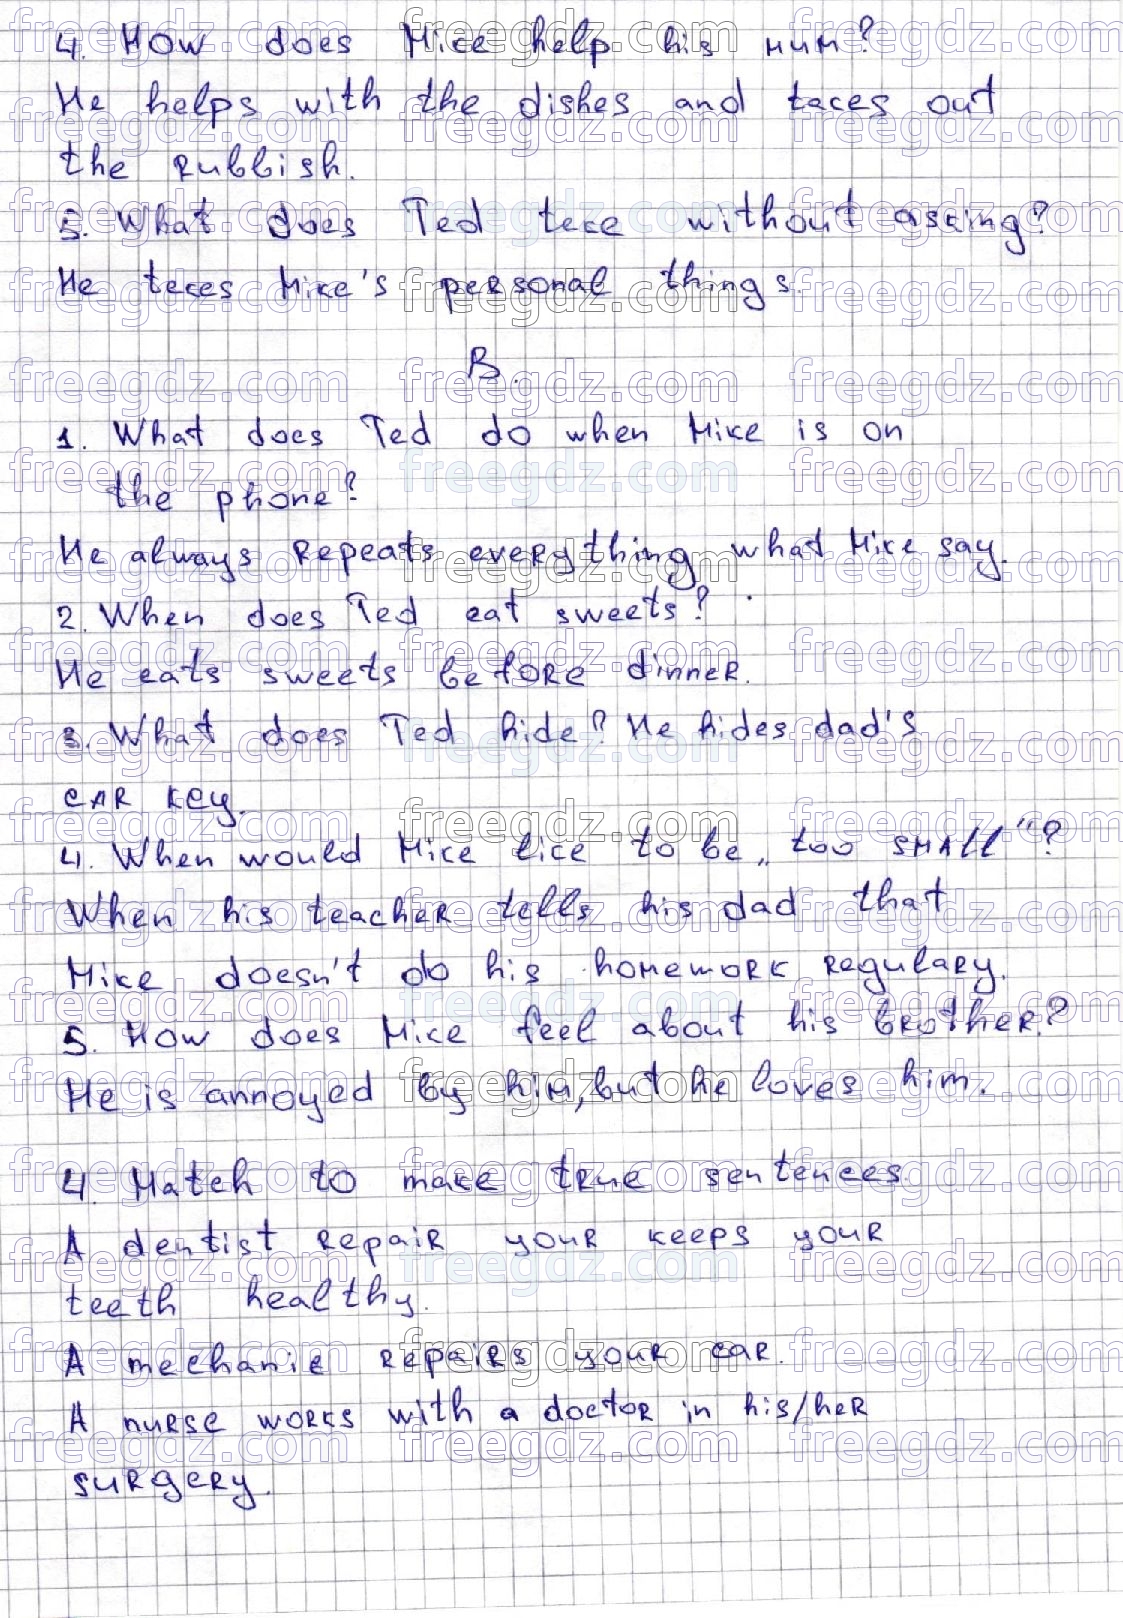 4. How does Mike help his mum?
He helps with the dishes and takes out
the rubbish.
5. What does Ted teke without asking?
He tekes Mike's personal things.
B.
1. What does Ted do when Mike is on
the phone?
He always repeats everything what Mike say.
2. When does Ted eat sweets?
He eats sweets before dinner.
3. What does Ted hide? He hides dad's
car key.
4. When would Mike like to be „too small"?
When his teacher tells his dad that
Mike doesn't do his homework regulary.
5. How does Mike feel about his brother?
He is annoyed by him, but he loves him.
4. Match to make true sentences.
A dentist repair your keeps your
teeth healthy.
A mechanic repairs your car.
A nurse works with a doctor in his/her
surgery.
freegdz.com